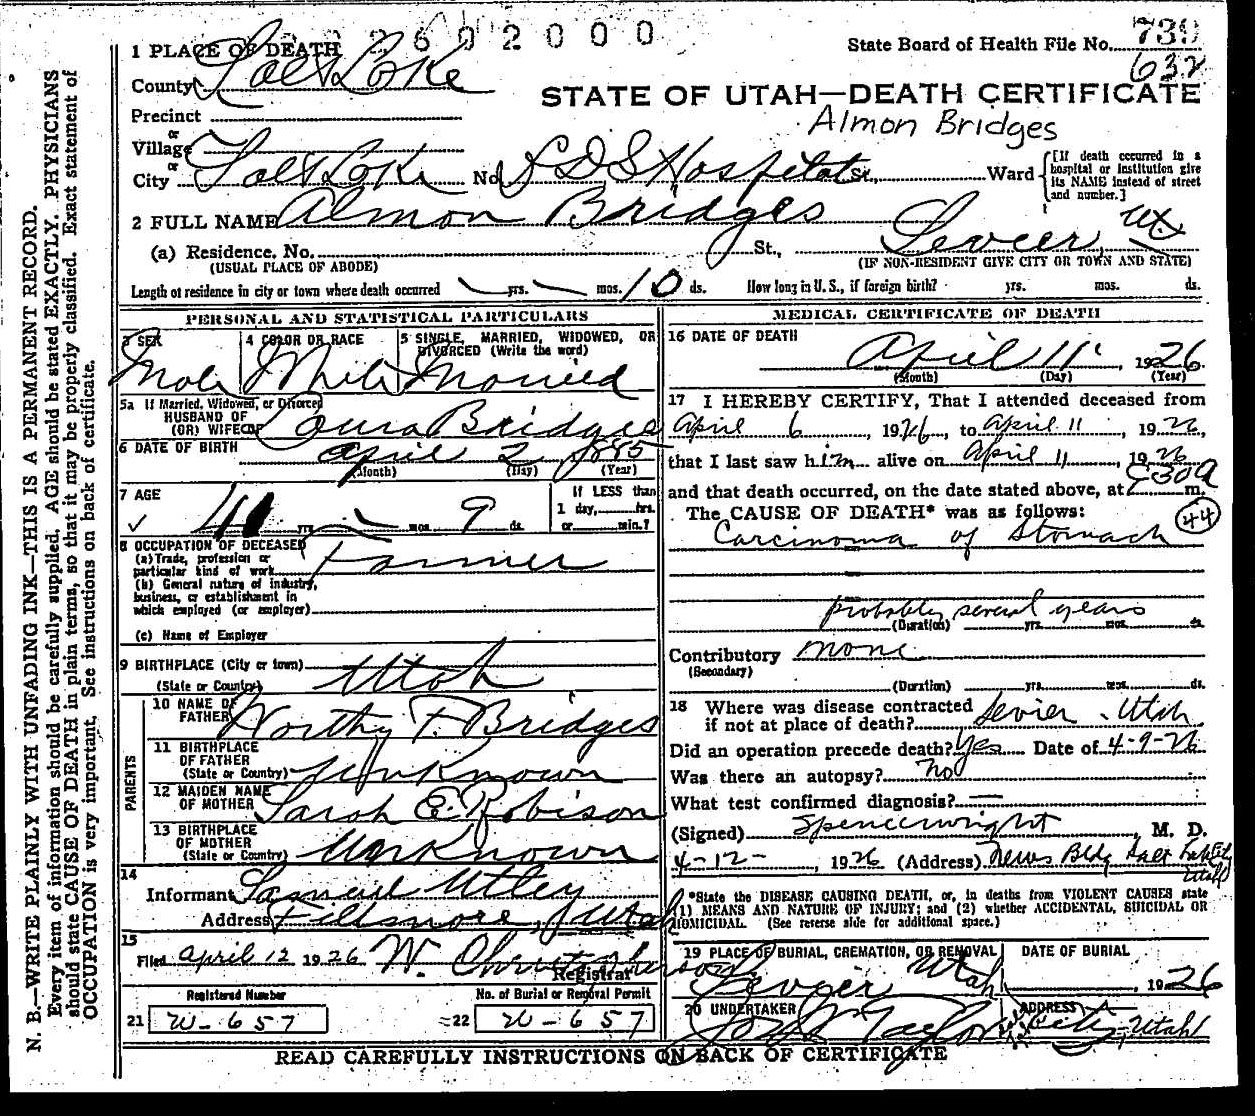 2602000
1 PLACE OF DEATH
State Board of Health File No. 739
632
County Salt Lake
STATE OF UTAH—DEATH CERTIFICATE
Precinct
Almon Bridges
or
Village
or
City Salt Lake No. L D S Hospital St., Ward
[If death occurred in a
hospital or institution give
its NAME instead of street
and number.]
2 FULL NAME Almon Bridges
(a) Residence. No. St., Sevier, Ut
(USUAL PLACE OF ABODE) (IF NON-RESIDENT GIVE CITY OR TOWN AND STATE)
Length of residence in city or town where death occurred — yrs. — mos. 10 ds. How long in U. S., if foreign birth? yrs. mos. ds.
PERSONAL AND STATISTICAL PARTICULARS
3 SEX
Male
4 COLOR OR RACE
White
5 SINGLE, MARRIED, WIDOWED, OR
DIVORCED (Write the word)
Married
5a If Married, Widowed, or Divorced
HUSBAND OF
(OR) WIFE OF Laura Bridges
6 DATE OF BIRTH April 2 1885
(Month) (Day) (Year)
7 AGE
41 yrs. — mos. 9 ds.
If LESS than
1 day, hrs.
or min.?
8 OCCUPATION OF DECEASED
(a) Trade, profession or
particular kind of work Farmer
(b) General nature of industry,
business, or establishment in
which employed (or employer)
(c) Name of Employer
9 BIRTHPLACE (City or town)
(State or Country) Utah
PARENTS
10 NAME OF
FATHER Worthy F. Bridges
11 BIRTHPLACE
OF FATHER
(State or Country) Unknown
12 MAIDEN NAME
OF MOTHER Sarah E. Robison
13 BIRTHPLACE
OF MOTHER
(State or Country) Unknown
14
Informant Samuel Utley
Address Fillmore, Utah
15
Filed April 12 1926 W. Christopherson
Registrar
Registered Number No. of Burial or Removal Permit
21 W-657 22 W-657
MEDICAL CERTIFICATE OF DEATH
16 DATE OF DEATH
April 11 1926
(Month) (Day) (Year)
17 I HEREBY CERTIFY, That I attended deceased from
April 6, 1926, to April 11, 1926,
that I last saw him alive on April 11, 1926
and that death occurred, on the date stated above, at 30a m.
The CAUSE OF DEATH* was as follows:
44
Carcinoma of Stomach
probably several years
(Duration) yrs. mos. ds.
Contributory none
(Secondary)
(Duration) yrs. mos. ds.
18 Where was disease contracted
if not at place of death? Sevier, Utah
Did an operation precede death? Yes Date of 4-9-26
Was there an autopsy? No
What test confirmed diagnosis? —
(Signed) Spencer Wright, M. D.
4-12-, 1926 (Address) News Bldg Salt Lake City
Utah
*State the DISEASE CAUSING DEATH, or, in deaths from VIOLENT CAUSES state
(1) MEANS AND NATURE OF INJURY; and (2) whether ACCIDENTAL, SUICIDAL OR
HOMICIDAL. (See reverse side for additional space.)
19 PLACE OF BURIAL, CREMATION, OR REMOVAL
Sevier Utah
DATE OF BURIAL
1926
20 UNDERTAKER
Taylor
ADDRESS
City, Utah
READ CAREFULLY INSTRUCTIONS ON BACK OF CERTIFICATE
N. B.—WRITE PLAINLY WITH UNFADING INK—THIS IS A PERMANENT RECORD.
Every item of information should be carefully supplied. AGE should be stated EXACTLY. PHYSICIANS
should state CAUSE OF DEATH in plain terms, so that it may be properly classified. Exact statement of
OCCUPATION is very important. See instructions on back of certificate.